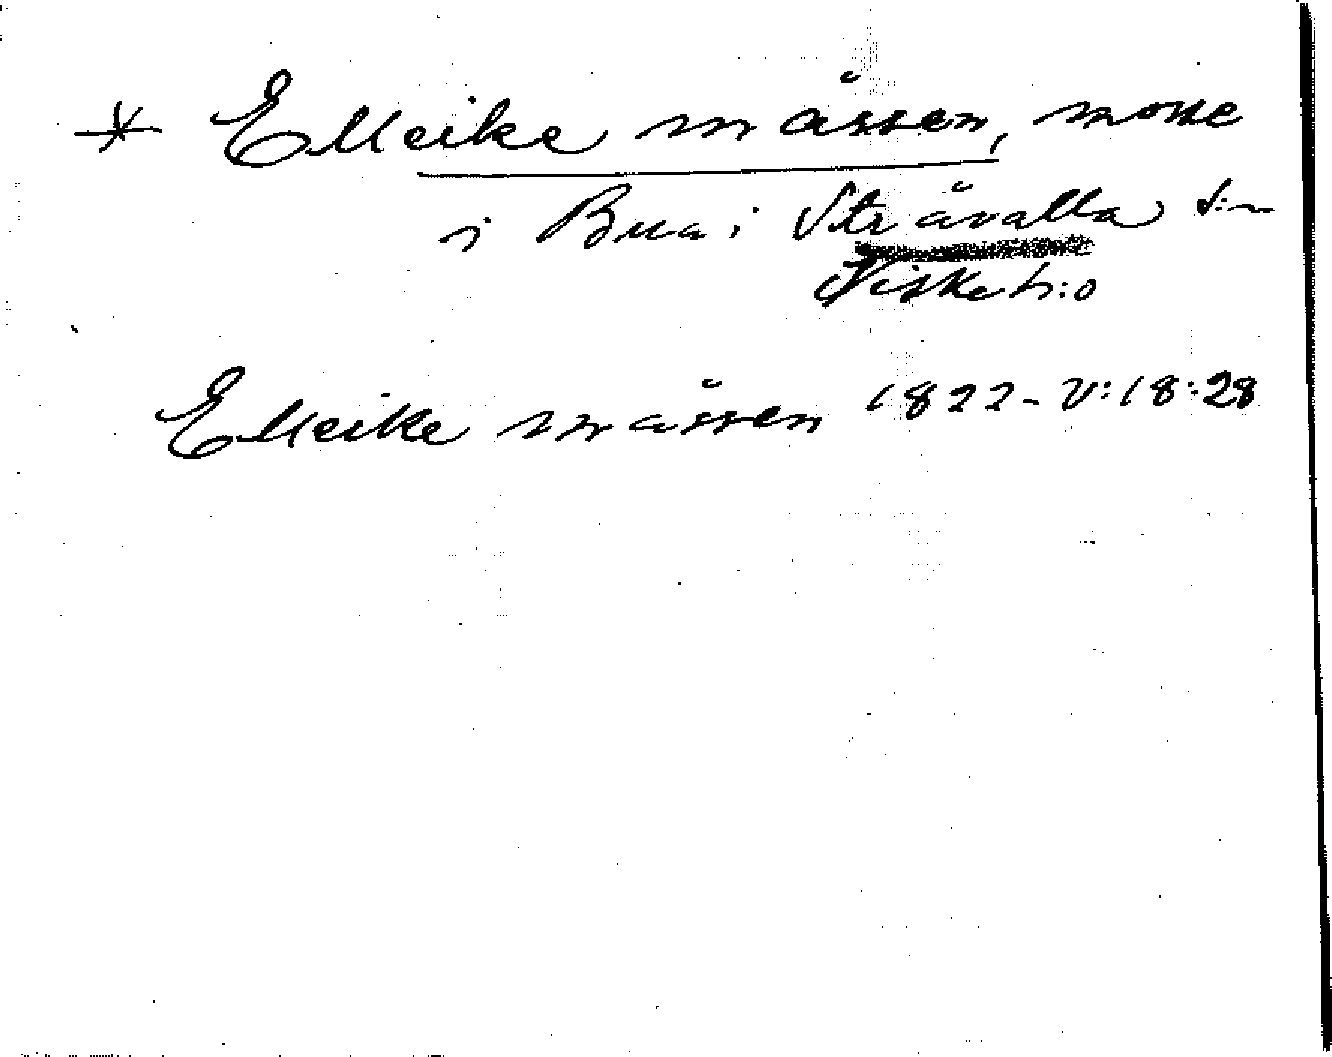 * Elleike mässen, mosse
i Bua i Stråvalla s:n
Viske h:o
Elleike mässen 1822-V:18:28